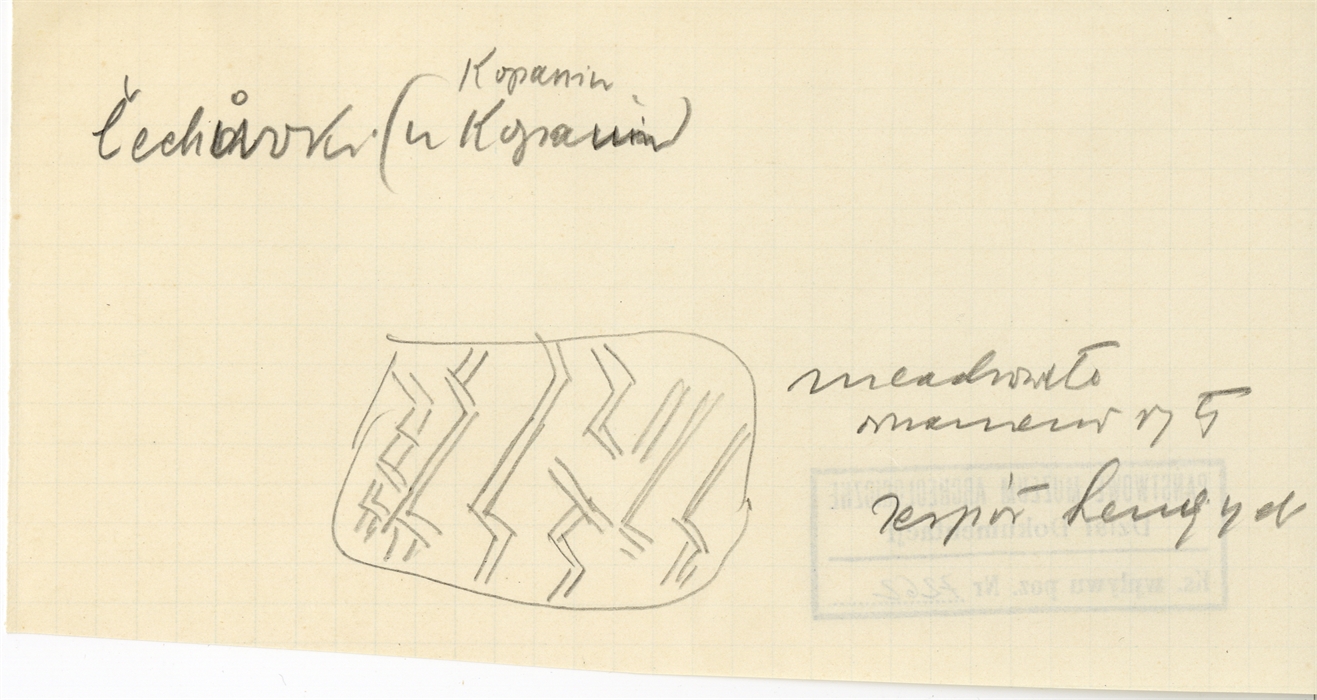 Kopanin
Čechůvki (u Kopanin)
ornament ryty
zespół Lengyel
PAŃSTWOWE MUZEUM ARCHEOLOGICZNE
Dział Dokumentacji
Ks. wpływu poz. Nr